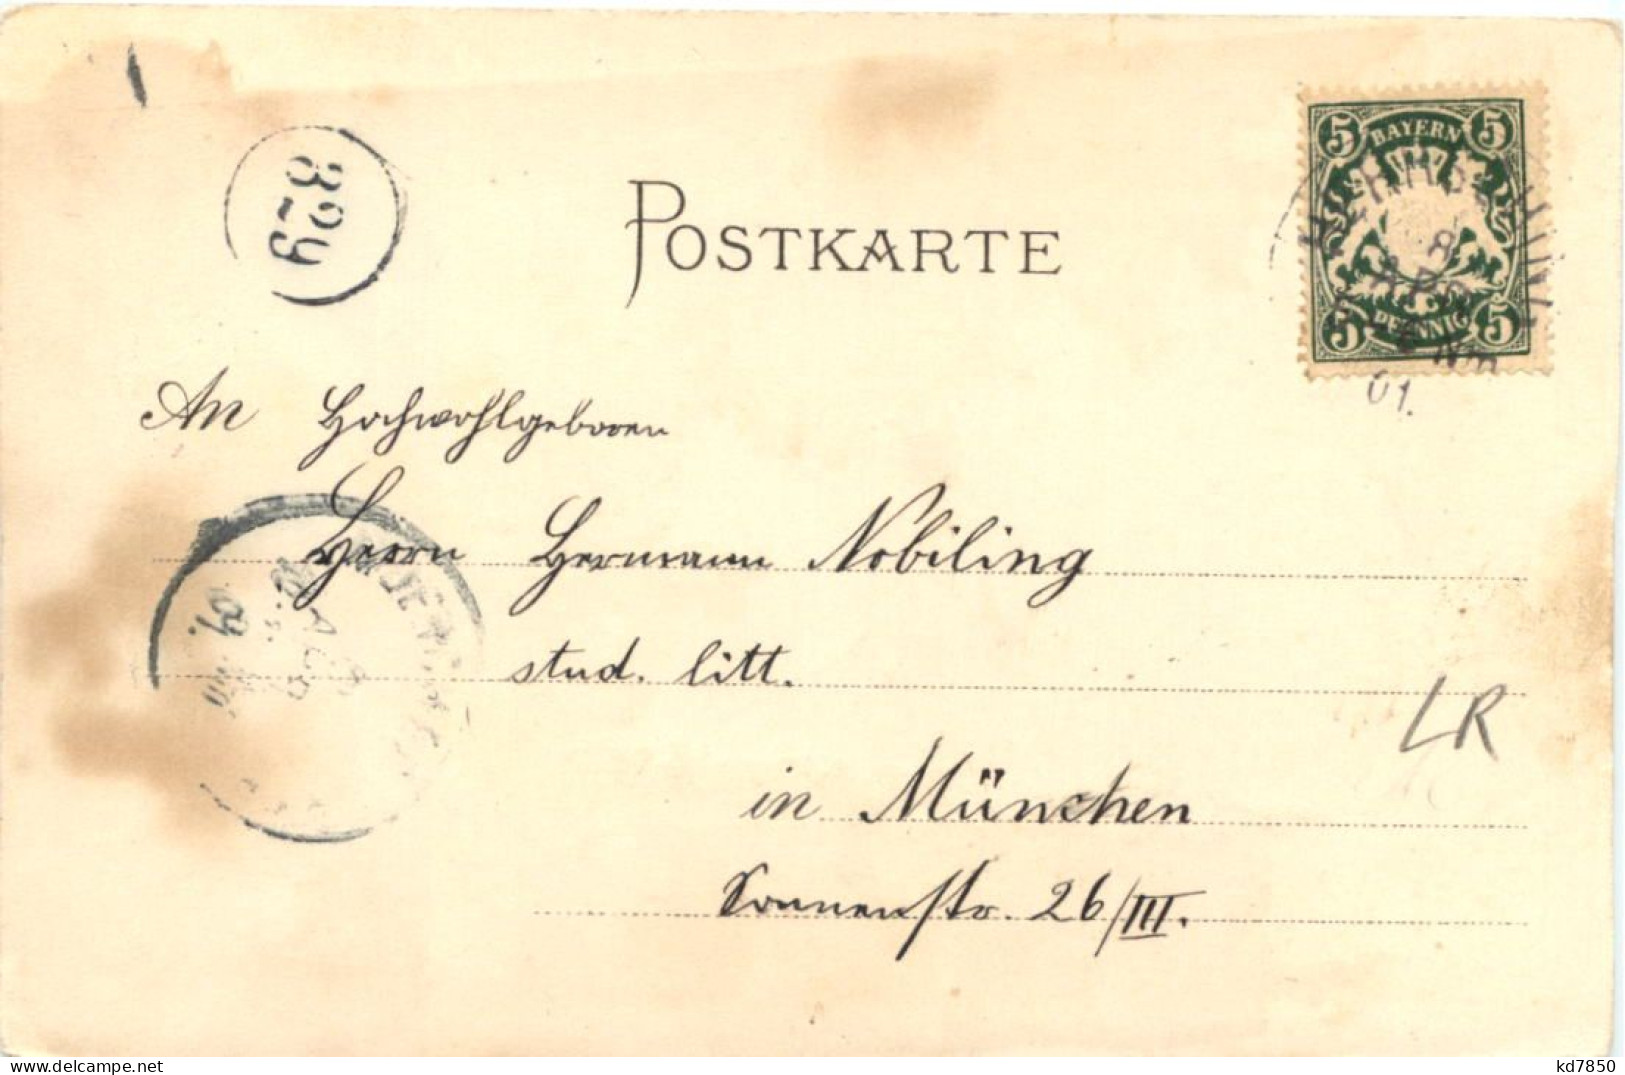 5 BAYERN 5
5 PFENNIG 5
8
APR
Nm
01.
329
POSTKARTE
An Hochwohlgeboren
Herrn Hermann Nobiling
stud. litt.
LR
in München
Sonnenstr. 26/III.
kd7850